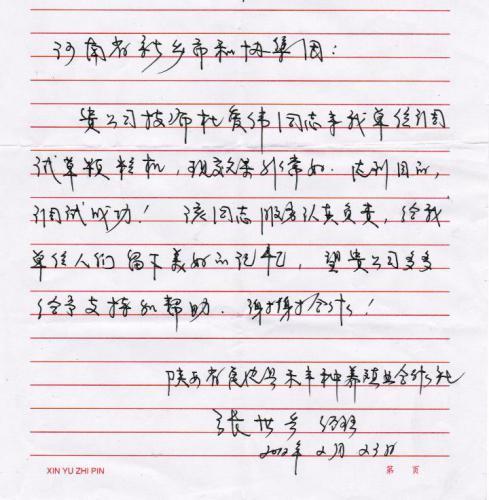 河南省新乡市和协集团:
贵公司技师杜爱伟同志来我单位调
试草颗粒机,现效果非常好.达到目的,
调试成功!该同志服务认真负责,给我
单位人们留下美好的记忆,望贵公司多多
给予支持和帮助.谢谢合作!
陕西省 县禾丰种养殖业合作社
张世 经理
2012年2月23日
XIN YU ZHI PIN
第 页